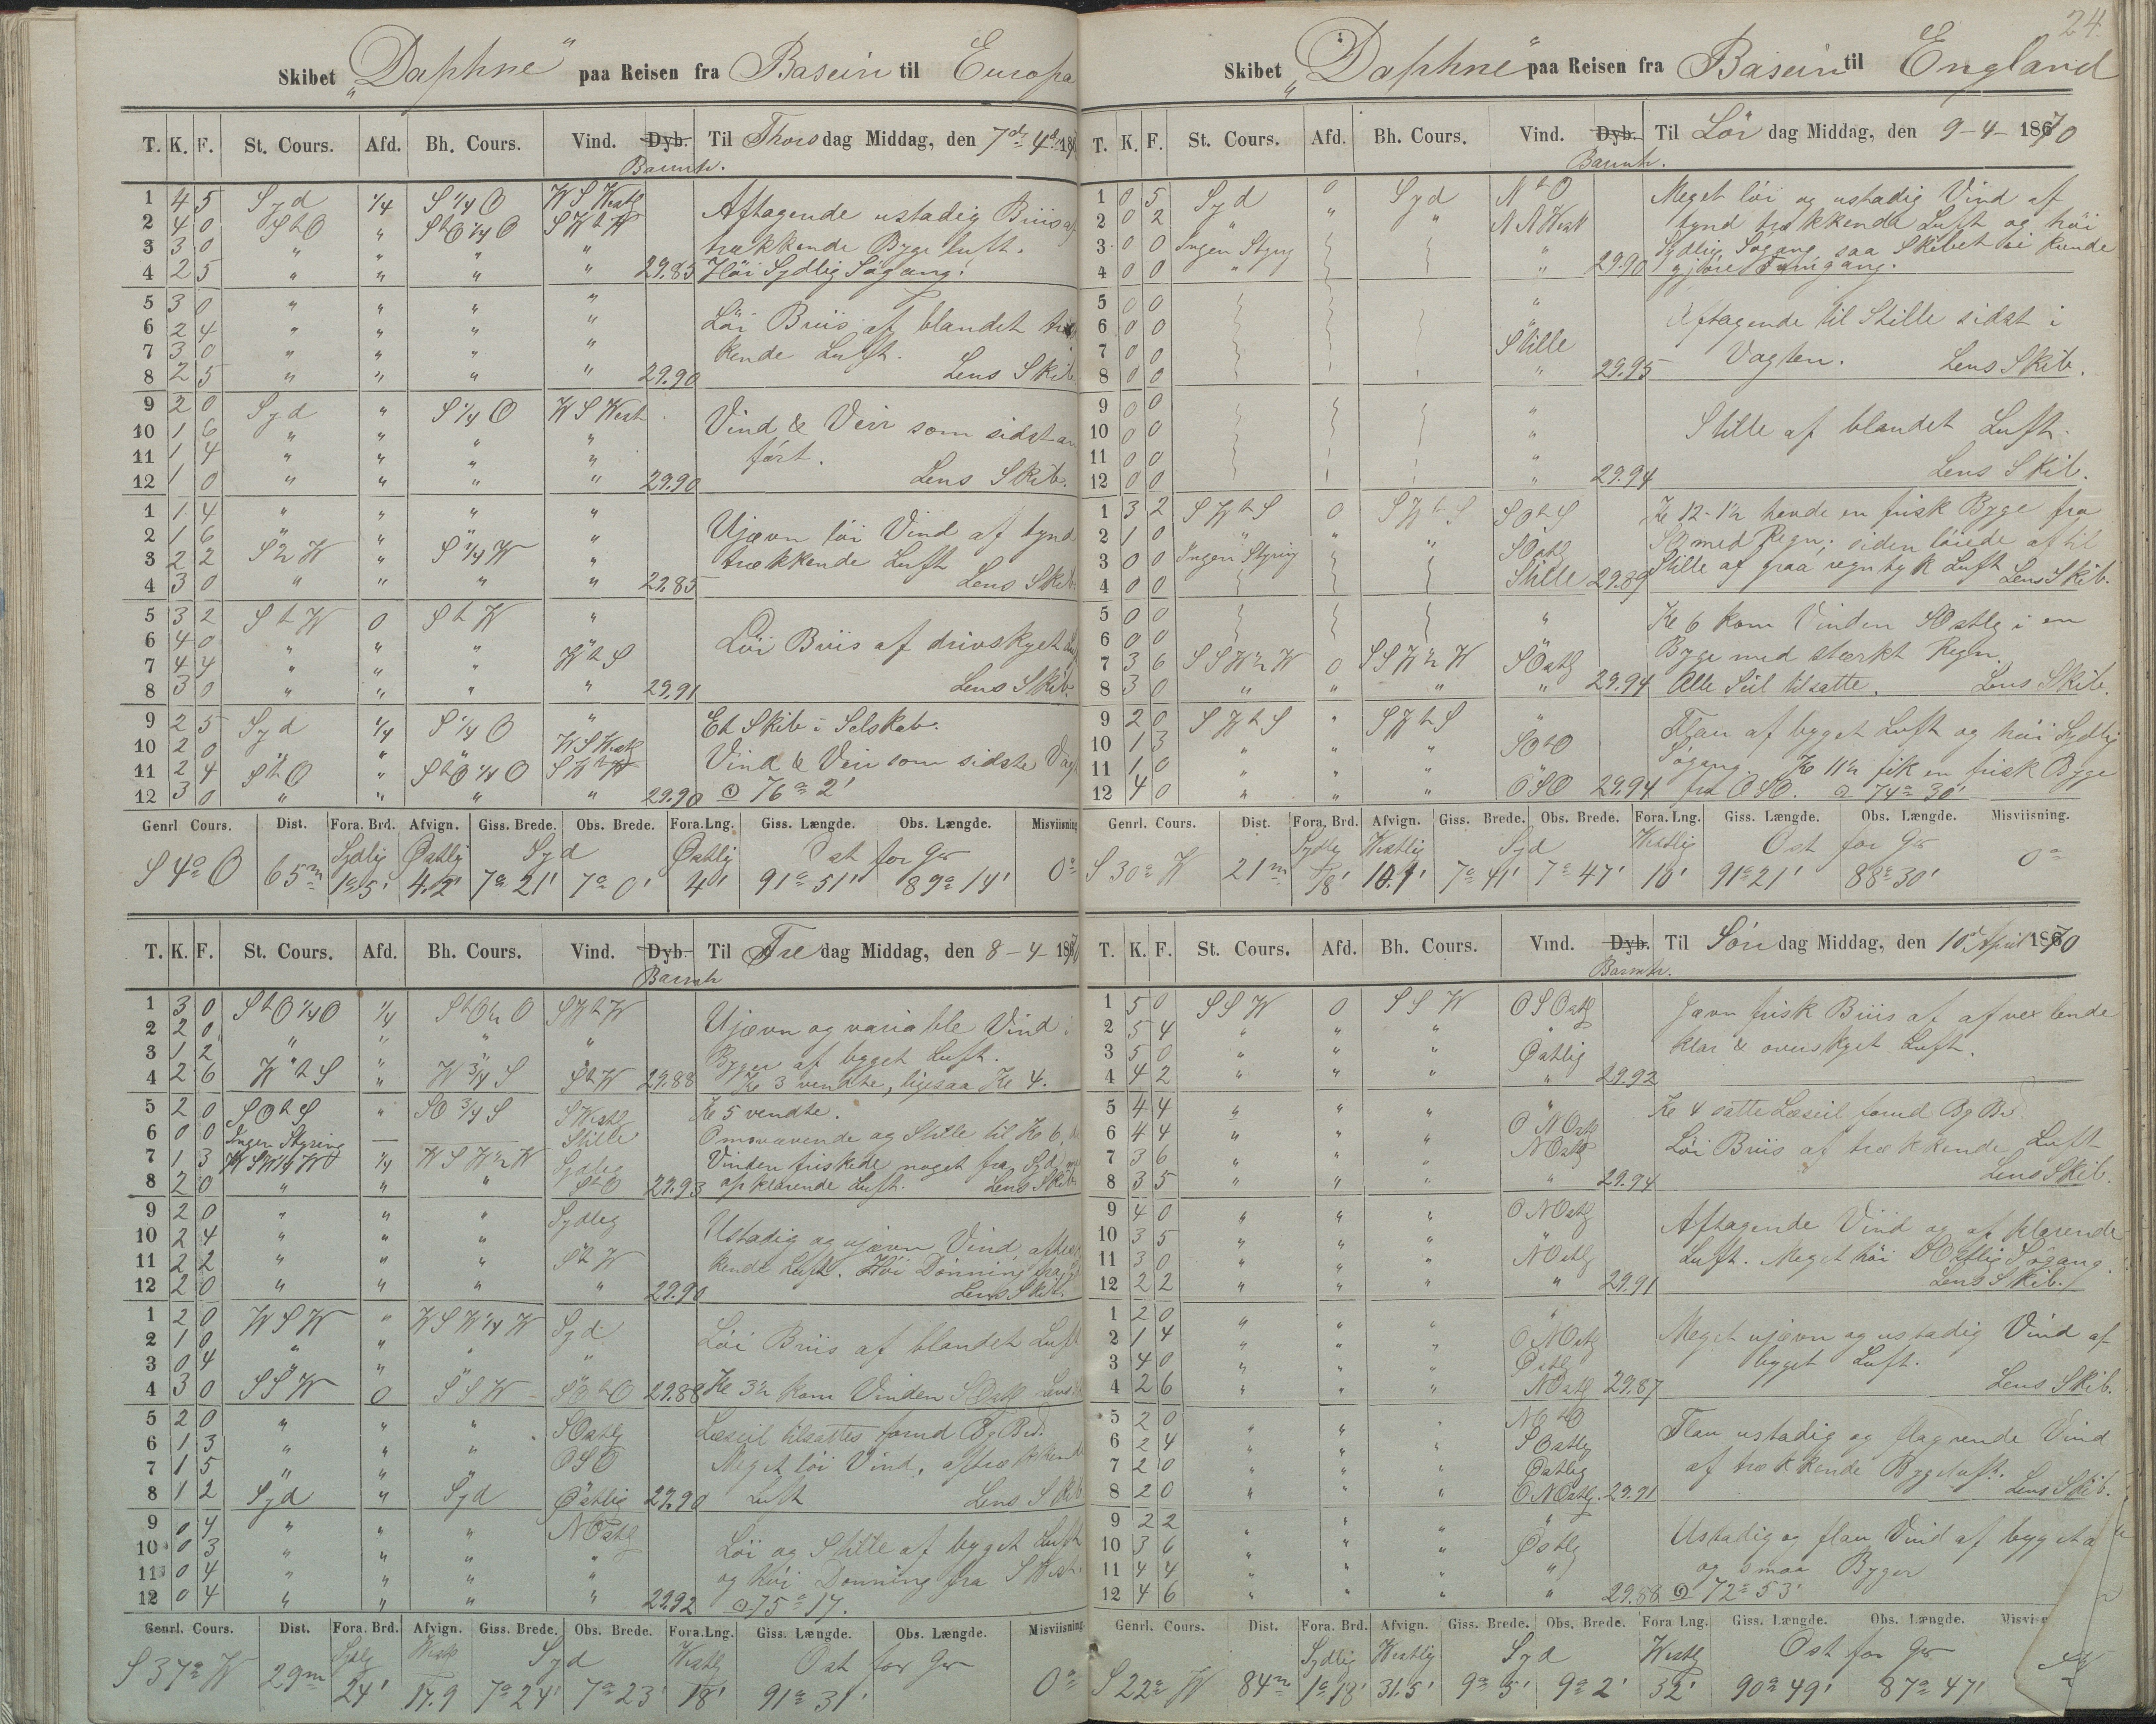 24.
Skibet "Daphne" paa Reisen fra Basein til Europa
T. K. F. St. Cours. Afd. Bh. Cours. Vind. Dyb. Til Thorsdag Middag, den 7d 4d 18
Barmtr.
1 4 5 Syd 1/4 S 1/4 O W S Westlg
2 4 0 StO " StO 1/4 O SWtW Aftagende ustadig Briis af
3 3 0 " " " " trækkende Byge luft.
4 2 5 " " " " 29.85 Höi Sydlig Søgang.
5 3 0 " " " "
6 2 4 " " " " Löi Briis af blandet træk
7 3 0 " " " " kende Luft.
8 2 5 " " " " 29.90 Lens Skib
9 2 0 Syd " S 1/4 O W S West
10 1 6 " " " " Vind & Veir som sidst an
11 1 4 " " " " fört.
12 1 0 " " " " 29.90 Lens Skib.
1 1 4 " " " "
2 1 6 " " " " Ujævn löi Vind af tynd
3 2 2 S 1/2 W " S 1/4 W " trækkende Luft
4 3 0 " " " " 29.85 Lens Skib
5 3 2 S t W 0 S t W "
6 4 0 " " " " Löi Briis af drivskyet
7 4 4 " " " W t S
8 3 0 " " " " 29.91 Lens Skib.
9 2 5 Syd 1/4 S 1/4 O " Et Skib i Selskab.
10 2 0 " " " W S Westlg Vind & Veir som sidste Vagt
11 2 4 S t O " StO 1/4 O S W t W
12 3 0 " " " " 29.90 ⊙ 76° 2'
Genrl Cours. Dist. Fora. Brd. Afvign. Giss. Brede. Obs. Brede. Fora.Lng. Giss. Længde. Obs. Længde. Misviisning
Sydlig Østlig Syd Østlig Ost for Gr
S 4° O 65m 1°5' 4.2' 7° 21' 7° 0' 4' 91° 51' 89° 14' 0°
T. K. F. St. Cours. Afd. Bh. Cours. Vind. Dyb. Til Fredag Middag, den 8-4-1870
Barmtr
1 3 0 StO 1/4 O 1/4 StO 1/2 O SWtW
2 2 0 " " " " Ujævn og variable Vind i
3 1 2 " " " " Byger af byget Luft.
4 2 6 W t S " W 3/4 S S t W 29.88 Kl 3 vendte, ligesaa Kl 4.
5 2 0 SO t S " SO 3/4 S S Westlg Kl 5 vendte.
6 0 0 Ingen Styring — — Stille Omvavende og Stille til Kl 6,
7 1 3 1/4 W S W 1/2 W Sydleg Vinden friskede noget fra Syd
8 2 0 " " " StO 29.93 afklarende Luft. Lens Skib
9 2 0 " " " Sydleg
10 2 4 " " " Ustadig og ujævn Vind, aftræk
11 2 2 " " " S t W kende Luft. Höi Dönning fra
12 2 0 " " " " 29.90 Lens Skib.
1 2 0 W S W " W S W 1/4 W Syd
2 1 0 " " " Löi Briis af blandet Luft
3 0 4 " " "
4 3 0 S S W 0 S S W SO t O 29.88 Kl 3 1/2 kom Vinden SOstlg Lens
5 2 0 " " " SOstlg Læseil tilsattes forud Bg Bd.
6 1 3 " " " OSO Meget löi Vind, aftrækkende
7 1 5 " " "
8 1 2 Syd " Syd Østlig 29.90 Luft Lens Skib
9 0 4 " " " NOstlg
10 0 3 " " " " Löi og Stille af byget Luft
11 0 4 " " " " og höi Dönning fra S West.
12 0 4 " " " " 29.92 ⊙ 75° 17.
Genrl. Cours. Dist. Fora. Brd. Afvign. Giss. Brede. Obs. Brede. Fora.Lng. Giss. Længde. Obs. Længde. Misviisning
Sydlg Westlg Syd Westlg Ost for Gr
S 37° W 29m 24' 17.9 7° 24' 7° 23' 18' 91° 31' 0°
Skibet "Daphne" paa Reisen fra Basein til England
T. K. F. St. Cours. Afd. Bh. Cours. Vind. Dyb. Til Lördag Middag, den 9-4-1870
Barmtr.
1 0 5 Syd 0 Syd N t O Meget löi og ustadig Vind af
2 0 2 " " " N N West tynd trækkende Luft og höi
3 0 0 Ingen Styring " Sydlig Søgang saa Skibet ei kunde
4 0 0 " " 29.90 gjöre Fremgang.
5 0 0 "
6 0 0 " Aftagende til Stille sidst i
7 0 0 Stille Vagten.
8 0 0 " 29.95 Lens Skib.
9 0 0 "
10 0 0 " Stille af blandet Luft.
11 0 0 "
12 0 0 " 29.94 Lens Skib.
1 3 2 S W t S 0 S W t S SO t S Kl 12-1 1/2 havde en frisk Byge fra
2 1 0 " " " SOstlg SO med Regn; siden löiede af til
3 0 0 Ingen Styring Stille af graa regntyk Luft
4 0 0 Stille 29.89 Lens Skib.
5 0 0 " Kl 6 kom Vinden SOstlg i en
6 0 0 Byge med stærkt Regn.
7 3 6 S S W 1/2 W 0 S S W 1/2 W SOstlg
8 3 0 " " " " 29.94 Alle Seil tilsatte. Lens Skib.
9 2 0 S W t S " S W t S " Flau af byget Luft og höi Sydlig
10 1 3 " " " SO t O Søgang. Kl 11 1/2 fik en frisk Byge
11 1 0 " " "
12 4 0 " " " OSO 29.94 fra OSO. ⊙ 74° 30'
Genrl. Cours. Dist. Fora. Brd. Afvign. Giss. Brede. Obs. Brede. Fora. Lng. Giss. Længde. Obs. Længde. Misviisning.
Sydlg Westlig Syd Westlig Ost for Gr
S 30° W 21m 18' 10.1' 7° 41' 7° 47' 10' 91° 21' 88° 30' 0°
T. K. F. St. Cours. Afd. Bh. Cours. Vind. Dyb. Til Söndag Middag, den 10d April 1870
Barmtr.
1 5 0 S S W 0 S S W O S Ostlg Jævn frisk Briis af afvexlende
2 5 4 " " " " klar & overskyet Luft.
3 5 0 " " " Østlig
4 4 2 " " " " 29.92
5 4 4 " " " " Kl 4 satte Læseil forud Bg Bd.
6 4 4 " " " O NOstlg Löi Briis af trækkende Luft
7 3 6 " " " NOstlg
8 3 5 " " " " 29.94 Lens Skib.
9 4 0 " " " O NOstlg Aftagende Vind og afklarende
10 3 5 " " " Luft. Meget höi SOstlig Søgang.
11 3 0 " " " NOstlg
12 2 2 " " " " 29.91 Lens Skib.
1 2 0 " " " "
2 1 4 " " " O NOstlg Meget ujævn og ustadig Vind af
3 4 0 " " " Østlg byget Luft.
4 2 6 " " " NOstlg 29.87 Lens Skib.
5 2 0 " " " NO t O Flau ustadig og flagrende Vind
6 2 4 " " " SOstlg af trækkende Bygeluft.
7 2 0 " " " Østlig
8 2 0 " " " O NOstlg. 29.91 Lens Skib.
9 2 2 " " " " Ustadig og flau Vind af byget
10 3 6 " " " Østlg og smaa Byger
11 4 4 " " " "
12 4 6 " " " " 29.88 ⊙ 72° 53'
Genrl. Cours. Dist. Fora. Brd. Afvign. Giss. Brede. Obs. Brede. Fora Lng. Giss. Længde. Obs. Længde. Misvis
Sydlig Westlig Syd Westlg Ost for Gr
S 22° W 84m 1° 18' 31.5' 9° 5' 9° 2' 32' 90° 49' 87° 47'